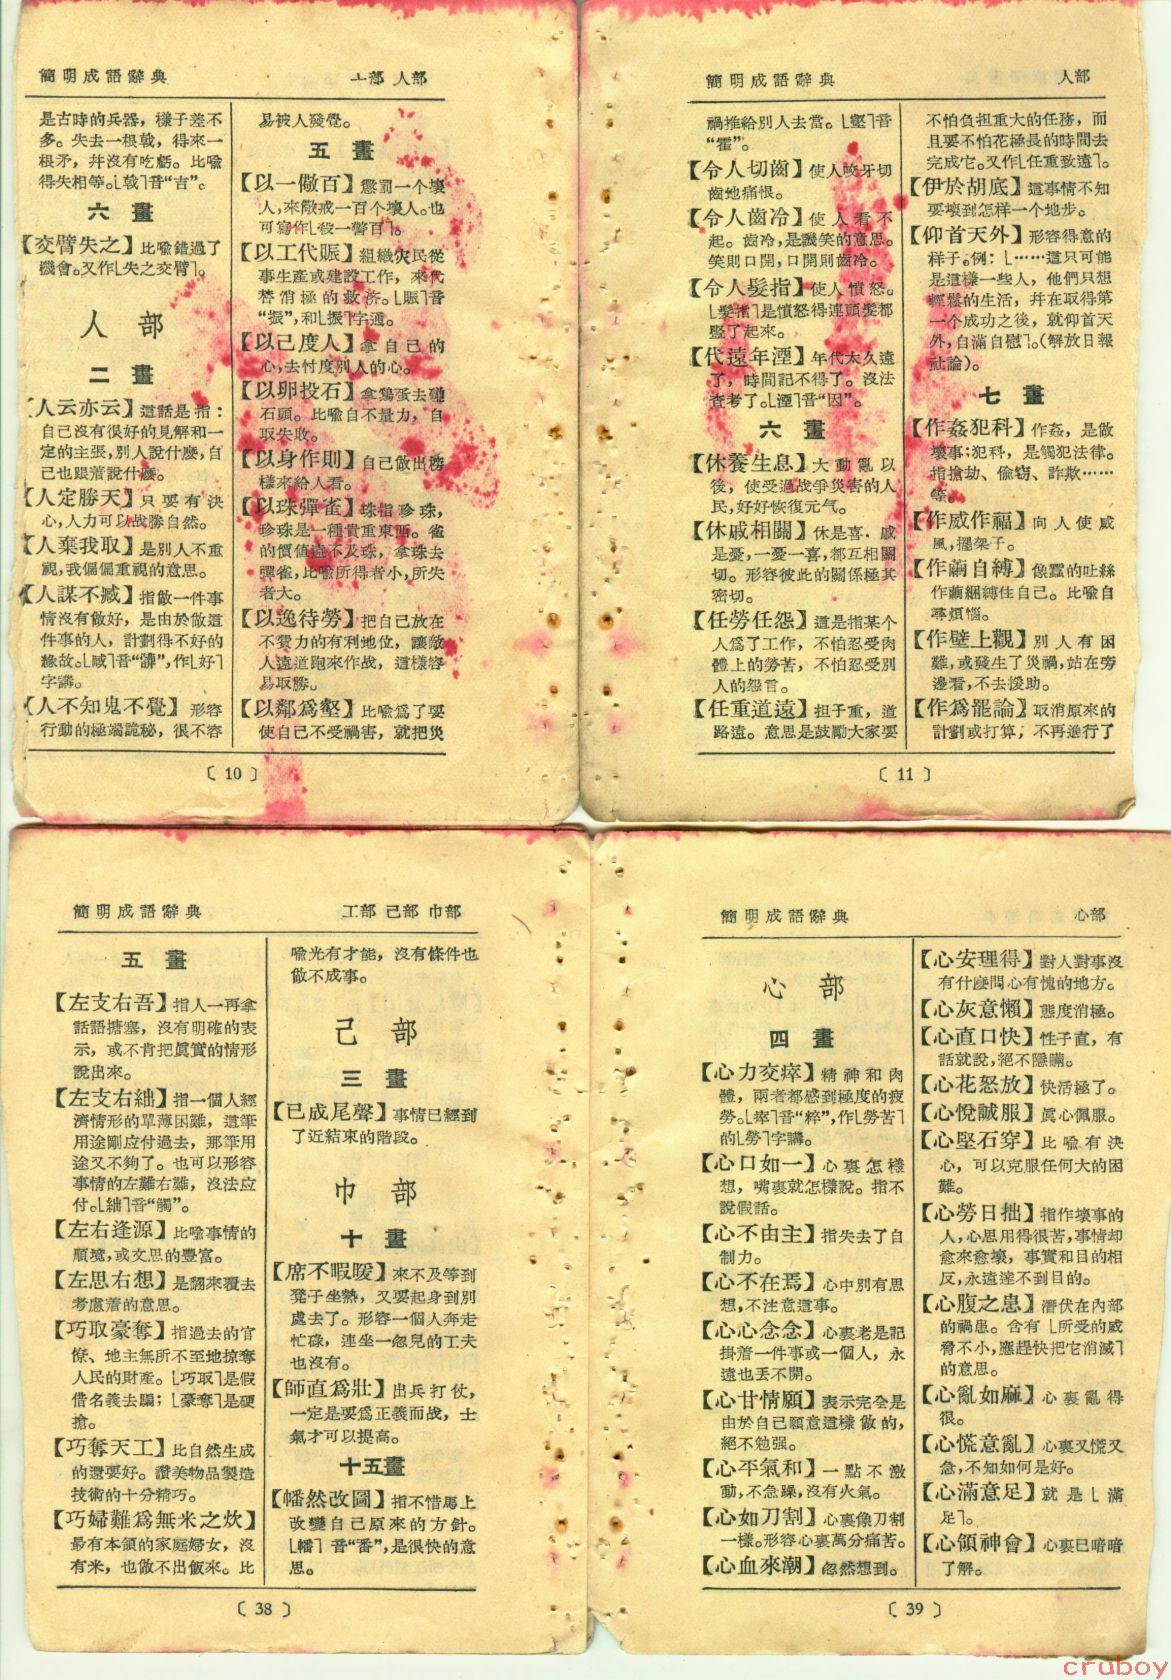 簡明成語辭典
亠部 人部
是古時的兵器，樣子差不
多。失去一根戟，得來一
根矛，幷沒有吃虧。比喩
得失相等。⌊戟⌉音“吉”。
六 畫
【交臂失之】比喩錯過了
機會。又作⌊失之交臂⌉。
人 部
二 畫
【人云亦云】這話是指：
自己沒有很好的見解和一
定的主張，別人說什麼，自
己也跟着說什麼。
【人定勝天】只要有決
心，人力可以战勝自然。
【人棄我取】是別人不重
視，我偏偏重視的意思。
【人謀不臧】指做一件事
情沒有做好，是由於做這
件事的人，計劃得不好的
緣故。⌊臧⌉音“髒”，作⌊好⌉
字講。
【人不知鬼不覺】形容
行動的極端詭秘，很不容
易被人發覺。
五 畫
【以一儆百】懲罰一个壞
人，來儆戒一百个壞人。也
可寫作⌊殺一警百⌉。
【以工代賑】組織灾民從
事生產或建設工作，來代
替消極的救济。⌊賑⌉音
“振”，和⌊振⌉字通。
【以己度人】拿自己的
心，去忖度別人的心。
【以卵投石】拿鷄蛋去碰
石頭。比喩自不量力，自
取失敗。
【以身作則】自己做出榜
樣來給人看。
【以珠彈雀】珠指珍珠，
珍珠是一種貴重東西。雀
的價值遠不及珠，拿珠去
彈雀，比喩所得者小，所失
者大。
【以逸待勞】把自己放在
不費力的有利地位，讓敵
人遠道跑來作战，這樣容
易取勝。
【以鄰爲壑】比喩爲了要
使自己不受禍害，就把災
〔 10 〕
簡明成語辭典
人部
禍推給別人去當。⌊壑⌉音
“霍”。
【令人切齒】使人咬牙切
齒地痛恨。
【令人齒冷】使人看不
起。齒冷，是譏笑的意思。
笑則口開，口開則齒冷。
【令人髮指】使人憤怒。
⌊髮指⌉是憤怒得連頭髮都
豎了起來。
【代遠年湮】年代太久遠
了，時間記不得了。沒法
查考了。⌊湮⌉音“因”。
六 畫
【休養生息】大動亂以
後，使受過战爭災害的人
民，好好恢復元气。
【休戚相關】休是喜，戚
是憂，一憂一喜，都互相關
切。形容彼此的關係極其
密切。
【任勞任怨】這是指某个
人爲了工作，不怕忍受肉
體上的勞苦，不怕忍受別
人的怨言。
【任重道遠】担子重，道
路遠。意思是鼓勵大家要
不怕負担重大的任務，而
且要不怕花極長的時間去
完成它。又作⌊任重致遠⌉。
【伊於胡底】這事情不知
要壞到怎样一个地步。
【仰首天外】形容得意的
样子。例：⌊……這只可能
是這樣一些人，他們只想
輕鬆的生活，幷在取得第
一个成功之後，就仰首天
外，自滿自慰⌉。(解放日報
社論)。
七 畫
【作姦犯科】作姦，是做
壞事：犯科，是觸犯法律。
指搶劫、偷窃、詐欺……
等。
【作威作福】向人使威
風，擺架子。
【作繭自縛】像蠶的吐絲
作繭綑縛住自己。比喩自
尋煩惱。
【作壁上觀】別人有困
難，或發生了災禍，站在旁
邊看，不去援助。
【作爲罷論】取消原來的
計劃或打算，不再進行了
〔 11 〕
簡明成語辭典
工部 己部 巾部
五 畫
【左支右吾】指人一再拿
話語搪塞，沒有明確的表
示，或不肯把眞實的情形
說出來。
【左支右絀】指一個人經
濟情形的單薄困難，這筆
用途剛应付過去，那筆用
途又不夠了。也可以形容
事情的左難右難，沒法应
付。⌊絀⌉音“觸”。
【左右逢源】比喩事情的
順境，或文思的豐富。
【左思右想】是翻來覆去
考慮着的意思。
【巧取豪奪】指過去的官
僚、地主無所不至地掠奪
人民的財產。⌊巧取⌉是假
借名義去騙；⌊豪奪⌉是硬
搶。
【巧奪天工】比自然生成
的還要好。讚美物品製造
技術的十分精巧。
【巧婦難爲無米之炊】
最有本領的家庭婦女，沒
有米，也做不出飯來。比
喩光有才能，沒有條件也
做不成事。
己 部
三 畫
【已成尾聲】事情已經到
了近結束的階段。
巾 部
十 畫
【席不暇暖】來不及等到
凳子坐熱，又要起身到別
處去了。形容一個人奔走
忙碌，連坐一忽兒的工夫
也沒有。
【師直爲壯】出兵打仗，
一定是要爲正義而战，士
氣才可以提高。
十五畫
【幡然改圖】指不惜馬上
改變自己原來的方針。
⌊幡⌉音“番”，是很快的意
思。
〔 38 〕
簡明成語辭典
心部
心 部
四 畫
【心力交瘁】精神和肉
體，兩者都感到極度的疲
勞。⌊瘁⌉音“粹”，作⌊勞苦⌉
的⌊勞⌉字講。
【心口如一】心裏怎樣
想，嘴裏就怎樣說。指不
說假話。
【心不由主】指失去了自
制力。
【心不在焉】心中別有思
想，不注意這事。
【心心念念】心裏老是記
掛着一件事或一個人，永
遠也丟不開。
【心甘情願】表示完全是
由於自己願意這樣做的，
絕不勉强。
【心平氣和】一點不激
動，不急躁，沒有火氣。
【心如刀割】心裏像刀割
一樣。形容心裏萬分痛苦。
【心血來潮】忽然想到。
【心安理得】對人對事沒
有什麼問心有愧的地方。
【心灰意懶】態度消極。
【心直口快】性子直，有
話就說，絕不隱瞞。
【心花怒放】快活極了。
【心悅誠服】眞心佩服。
【心堅石穿】比喩有決
心，可以克服任何大的困
難。
【心勞日拙】指作壞事的
人，心思用得很苦，事情却
愈來愈壞，事實和目的相
反，永遠達不到目的。
【心腹之患】潛伏在內部
的禍患。含有⌊所受的威
脅不小，應趕快把它消滅⌉
的意思。
【心亂如麻】心裏亂得
很。
【心慌意亂】心裏又慌又
急，不知如何是好。
【心滿意足】就是⌊滿
足⌉。
【心領神會】心裏已暗暗
了解。
〔 39 〕
cruboy